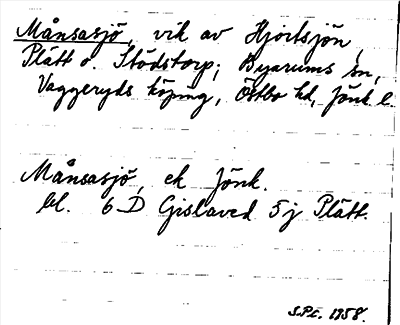 Månsasjö, vik av Hjortsjön,
Plått o. Stödstorp; Byarums sn,
Vaggeryds köping, Östbo hd, Jönk. l.
Månsasjö, ek Jönk.
bl. 6 D Gislaved 5 j Plått.
S.P.E. 1958.